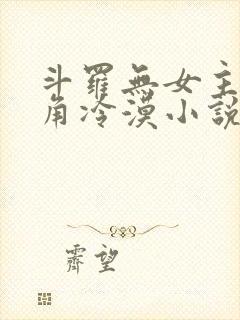 斗羅無女主
角冷漠小説
霽望